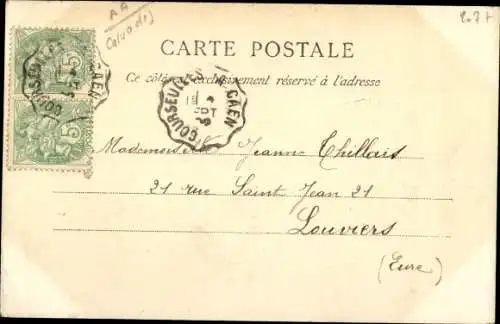 AA
Calvados
CARTE POSTALE
Ce côté est exclusivement réservé à l'adresse
COURSEULLES A CAEN
COURSEULLES A CAEN
5
5
Mademoiselle Jeanne Thillais
21 rue Saint Jean 21
Louviers
(Eure)